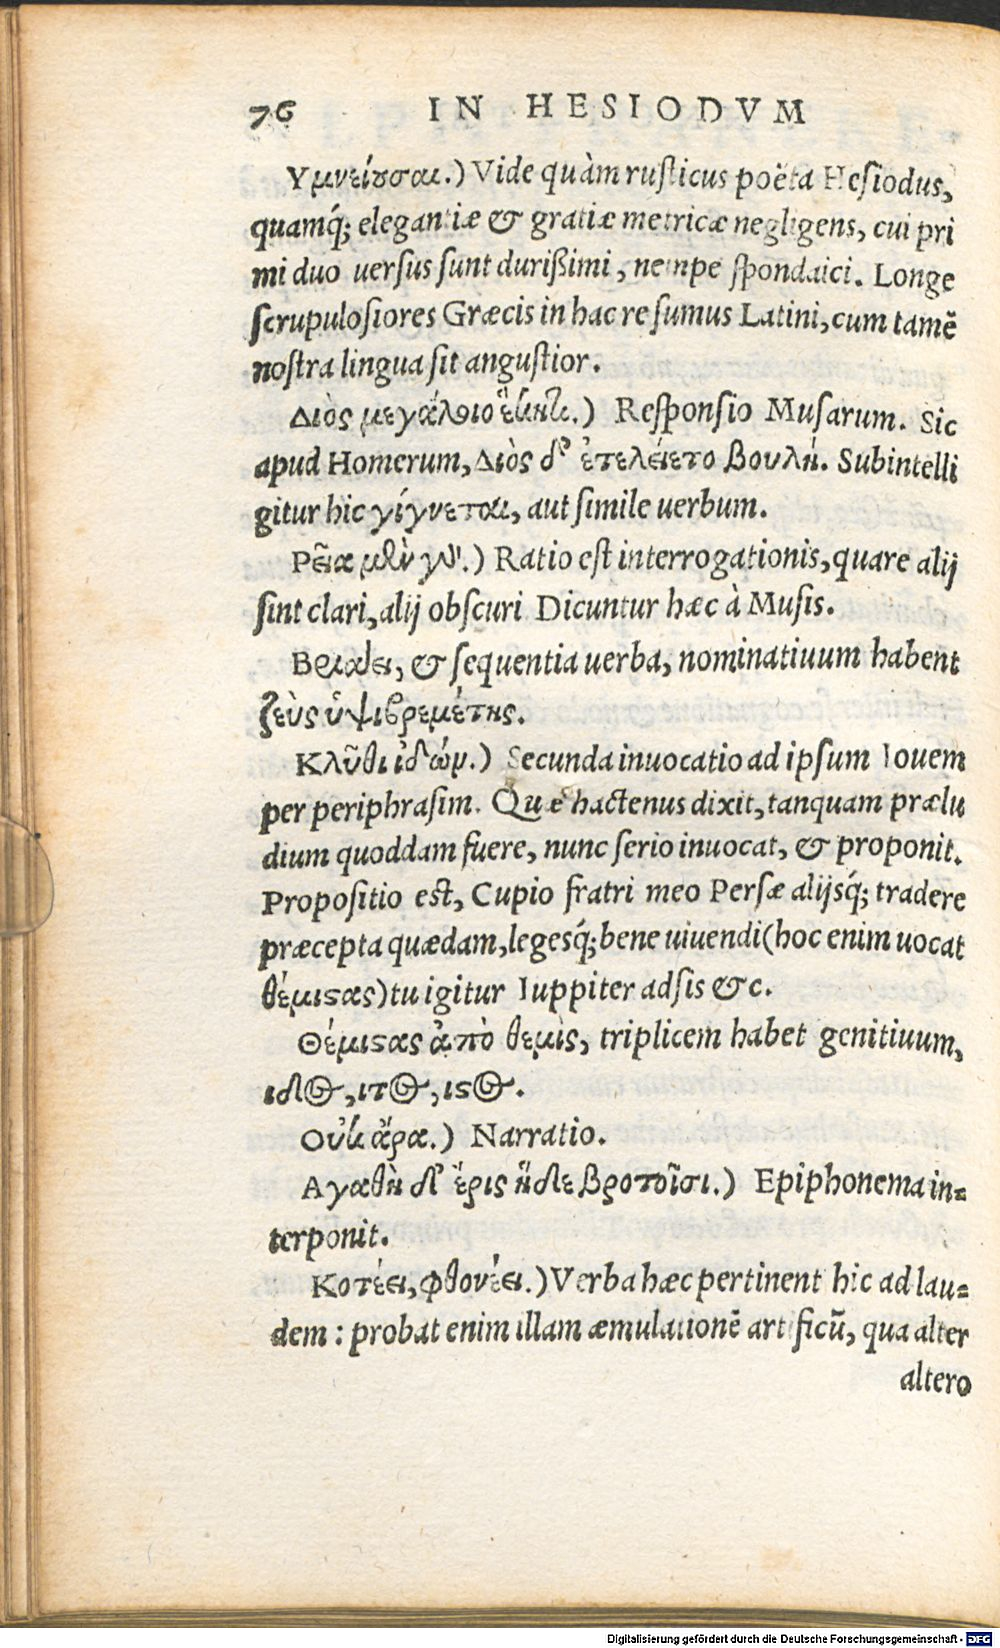 76 IN HESIODVM
Υμνείουσαι.) Vide quàm rusticus poëta Hesiodus,
quamq́; elegantiæ & gratiæ metricæ negligens, cui pri
mi duo uersus sunt durißimi, nempe spondaici. Longe
scrupulosiores Græcis in hac re sumus Latini, cum tamē
nostra lingua sit angustior.
Διὸς μεγάλοιο ἕκητι.) Responsio Musarum. Sic
apud Homerum, Διὸς δ' ἐτελείετο βουλή. Subintelli
gitur hic γίγνεται, aut simile uerbum.
Ρεῖα μὲν γὰρ.) Ratio est interrogationis, quare alij
sint clari, alij obscuri Dicuntur hæc à Musis.
Βριάει, & sequentia uerba, nominatiuum habent
ζεὺς ὑψιβρεμέτης.
Κλῦθι ἰδών.) Secunda inuocatio ad ipsum Iouem
per periphrasim. Quæ hactenus dixit, tanquam prælu
dium quoddam fuere, nunc serio inuocat, & proponit.
Propositio est, Cupio fratri meo Persæ alijsq́; tradere
præcepta quædam, legesq́; bene uiuendi (hoc enim uocat
θέμιςας) tu igitur Iuppiter adsis &c.
Θέμιςας ἀπὸ θεμὶς, triplicem habet genitiuum,
ιδος, ιτος, ιςος.
Οὐκ ἄρα.) Narratio.
Αγαθὴ δ' ἔρις ἥδε βροτοῖσι.) Epiphonema in=
terponit.
Κοτέει, φθονέει.) Verba hæc pertinent hic ad lau=
dem: probat enim illam æmulationē artificū, qua alter
altero
Digitalisierung gefördert durch die Deutsche Forschungsgemeinschaft - DFG